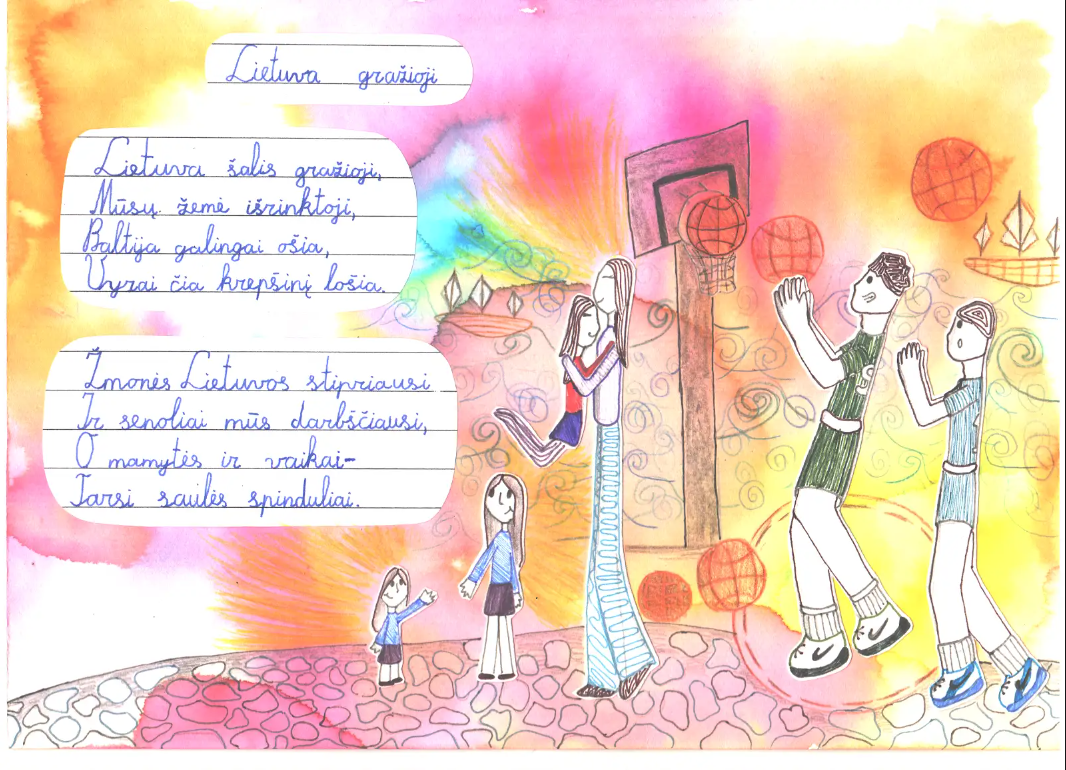 Lietuva gražioji
Lietuva šalis gražioji,
Mūsų žemė išrinktoji,
Baltija galingai ošia,
Vyrai čia krepšinį lošia.
Žmonės Lietuvos stipriausi
Ir senoliai mūs darbščiausi,
O mamytės ir vaikai-
Tarsi saulės spinduliai.